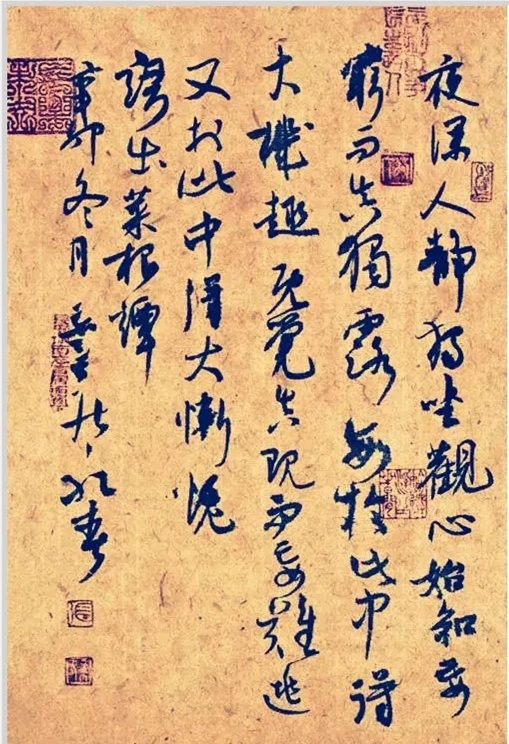 夜深人靜獨坐觀心始知妄
窮而真獨露每於此中得
大機趣既覺真現而妄難逃
又於此中得大慚愧
語出菜根譚
辛卯冬月